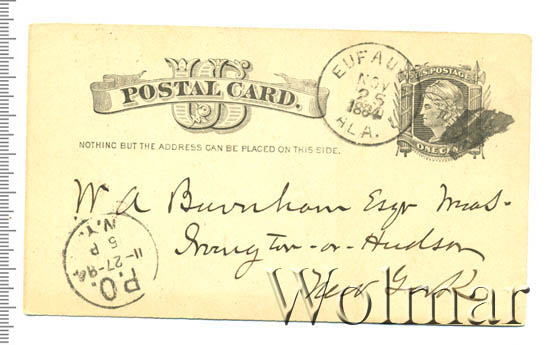 US
POSTAL CARD.
NOTHING BUT THE ADDRESS CAN BE PLACED ON THIS SIDE.
EUFAU
NOV
25
1884
ALA.
U.S. POSTAGE
ONE CENT
W A Burnham Esqr
Irvington-on-Hudson
New York
P.O.
11-27-84
5 P
N.Y.
Wolmar